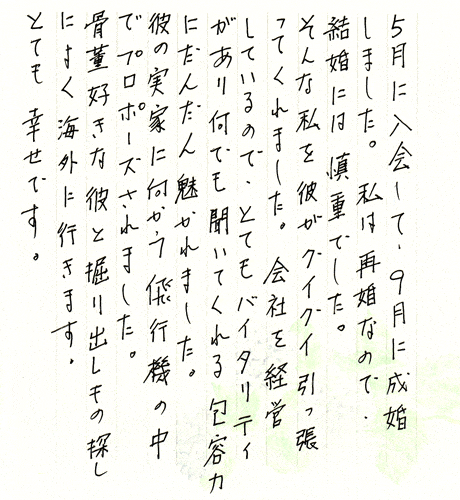 5月に入会して、9月に成婚
しました。私は再婚なので、
結婚には慎重でした。
そんな私を彼がグイグイ引っ張
ってくれました。会社を経営
しているので、とてもバイタリティ
があり何でも聞いてくれる包容力
にだんだん魅かれました。
彼の実家に向かう飛行機の中
でプロポーズされました。
骨董好きな彼と掘り出しもの探し
によく海外に行きます。
とても幸せです。